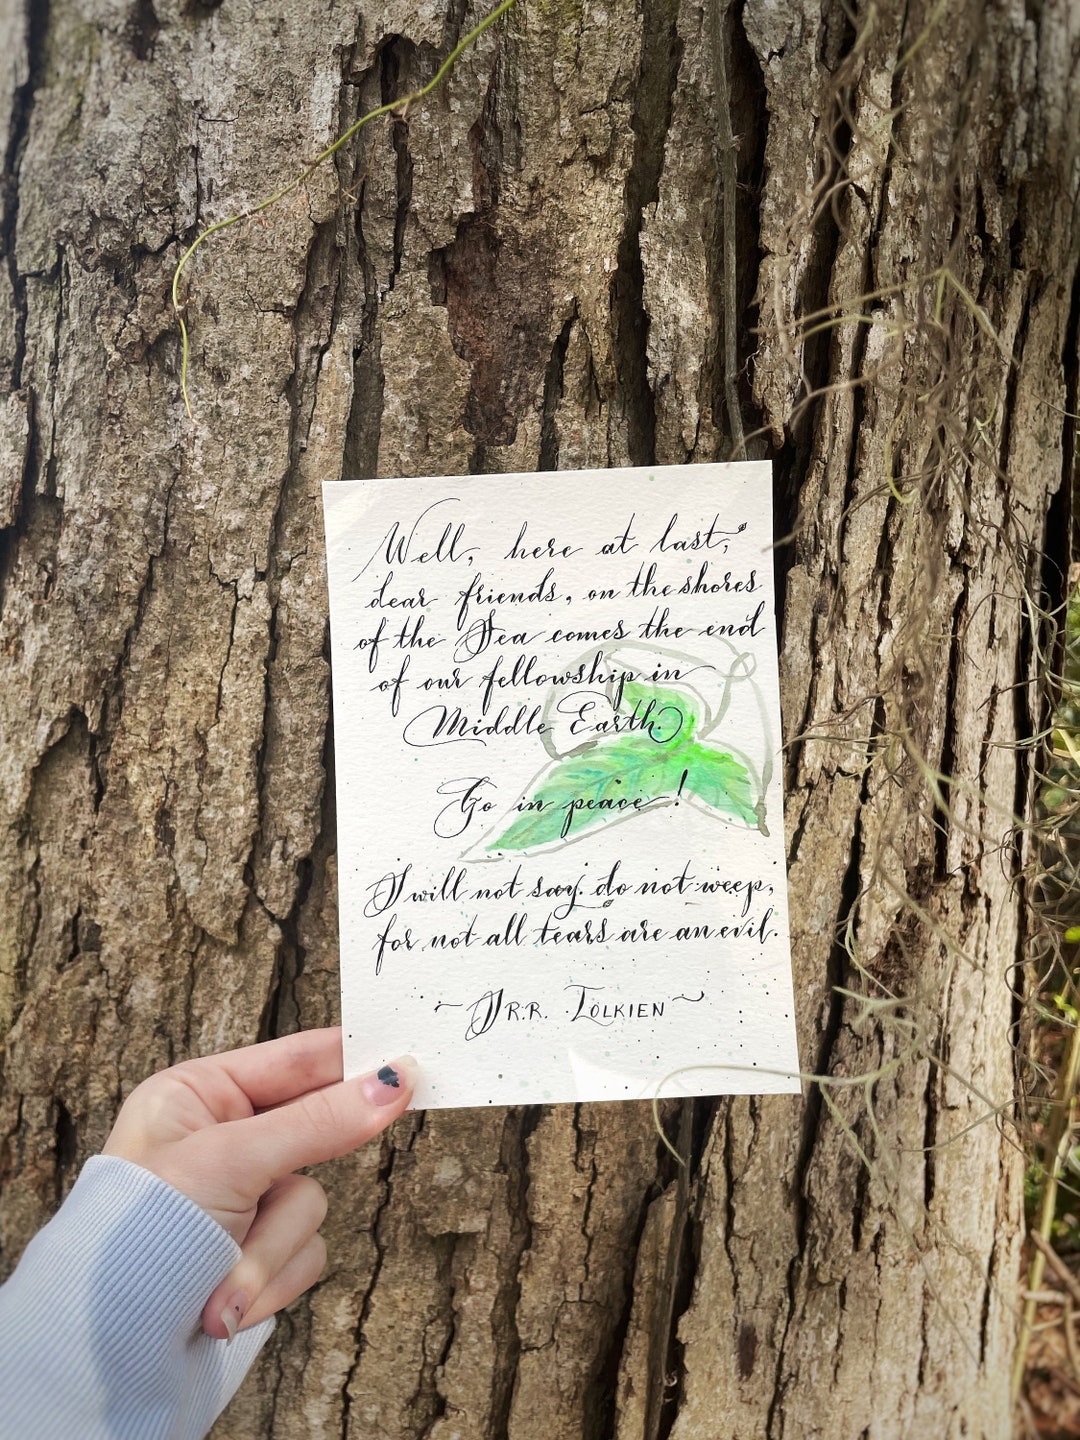 Well, here at last,
dear friends, on the shores
of the Sea comes the end
of our fellowship in
Middle Earth.
Go in peace!
I will not say do not weep,
for not all tears are an evil.
~ J R.R. Tolkien ~